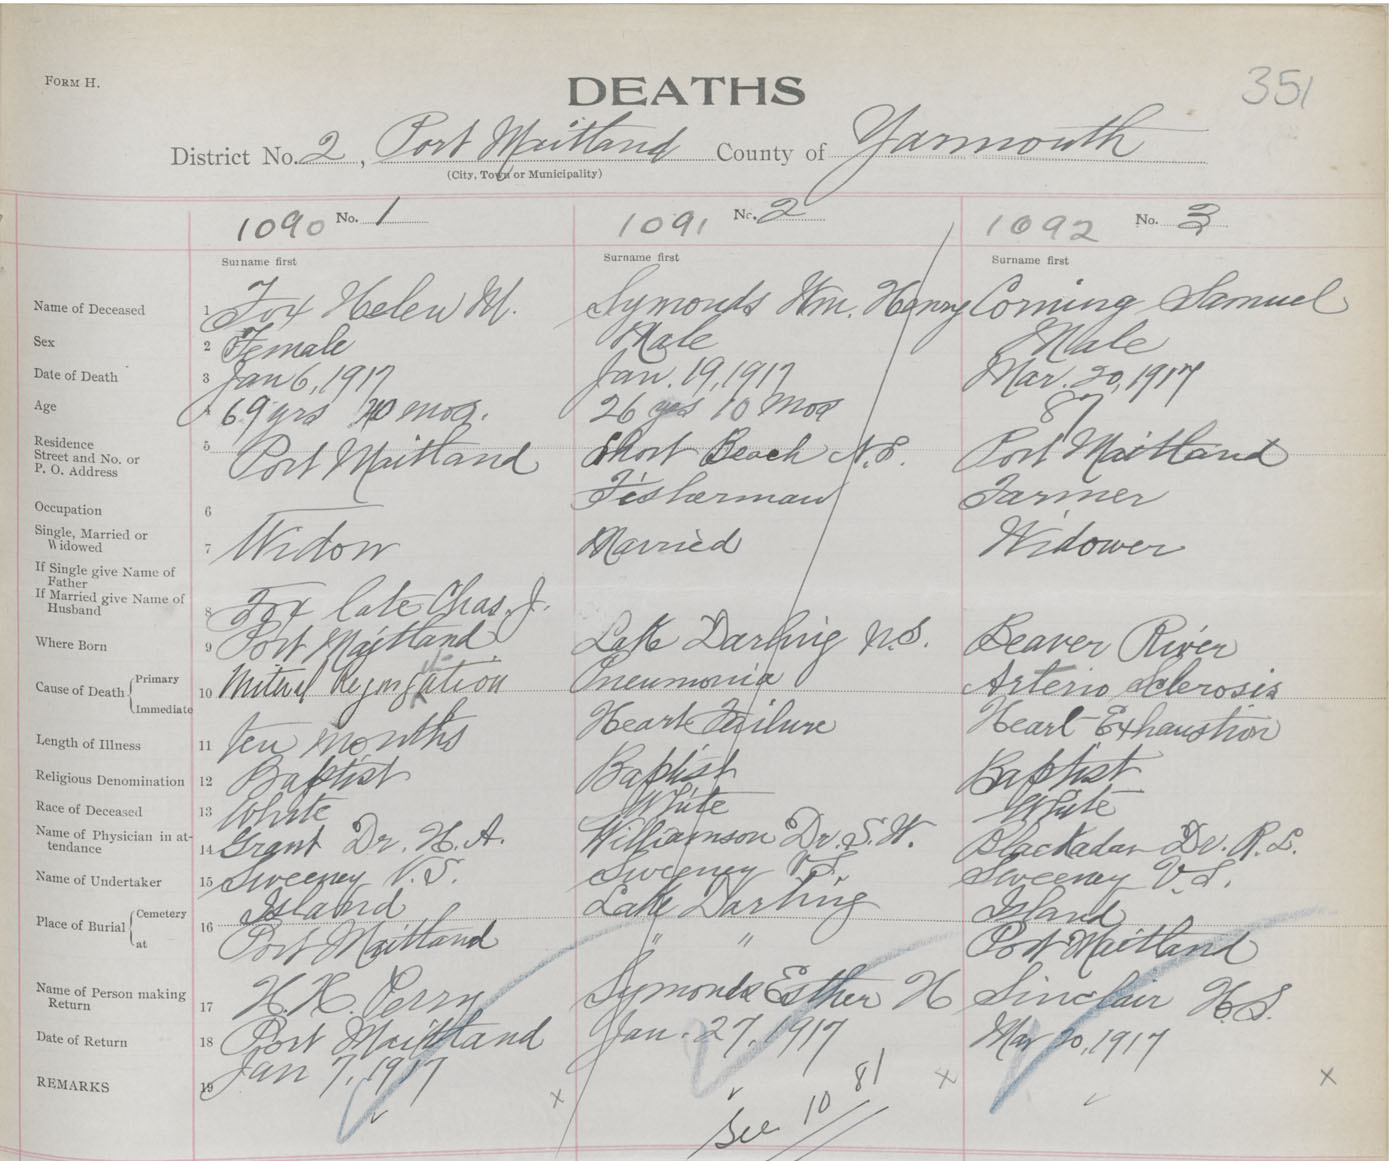 FORM H.
DEATHS
351
District No. 2, Port Maitland County of Yarmouth
(City, Town or Municipality)
1090 No. 1 1091 No. 2 1092 No. 3
Surname first Surname first Surname first
Name of Deceased 1 Fox Helen M. Symonds Wm. Henry Corning Samuel
Sex 2 Female Male Male
Date of Death 3 Jan 6, 1917 Jan. 19, 1917 Mar. 20, 1917
Age 69 yrs 10 mos. 26 yrs 10 mos 87
Residence
Street and No. or
P. O. Address 5 Port Maitland Short Beach N.S. Port Maitland
Occupation 6 Fisherman Farmer
Single, Married or
Widowed 7 Widow Married Widower
If Single give Name of
Father
If Married give Name of
Husband 8 Fox late Chas. J.
Where Born 9 Port Maitland Lake Darling N.S. Beaver River
Cause of Death Primary 10 Mitral Regurgitation Pneumonia Arterio Sclerosis
Immediate Heart Failure Heart Exhaustion
Length of Illness 11 ten months
Religious Denomination 12 Baptist Baptist Baptist
Race of Deceased 13 White White White
Name of Physician in at-
tendance 14 Grant Dr. H. A. Williamson Dr. S. W. Blackadar Dr. R. L.
Name of Undertaker 15 Sweeney V. S. Sweeney V. S. Sweeney V. S.
Place of Burial Cemetery 16 Island Lake Darling Island
at Port Maitland " " Port Maitland
Name of Person making
Return 17 H. H. Perry Symonds Esther H Sinclair H. S.
Date of Return 18 Port Maitland Jan. 27, 1917 Mar 20, 1917
REMARKS 19 Jan 7, 1917
x x x
See 1081